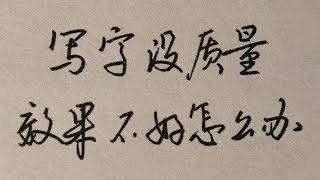 写字没质量
效果不好怎么办